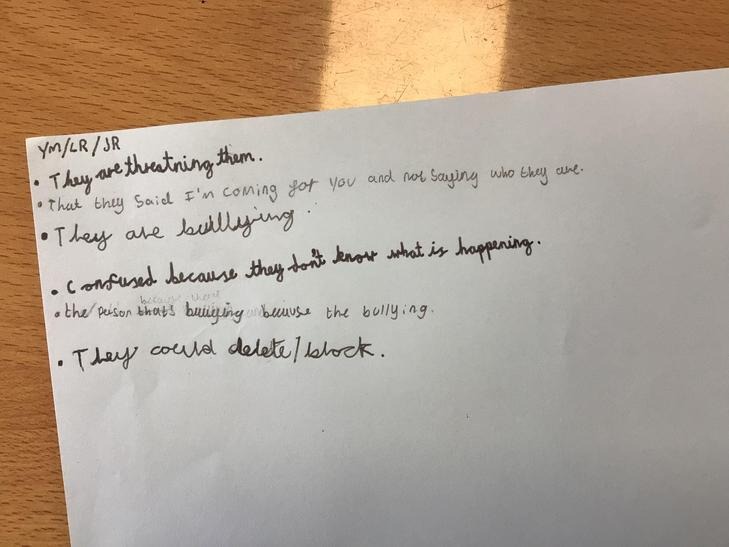 YM/LR/JR
• They are threatning them.
• That they Said I'm coming for you and not Saying who they are.
• They are bullying.
• Confused because they don't know what is happening.
because there
• the person that's bullying because the bullying.
• They could delete/block.